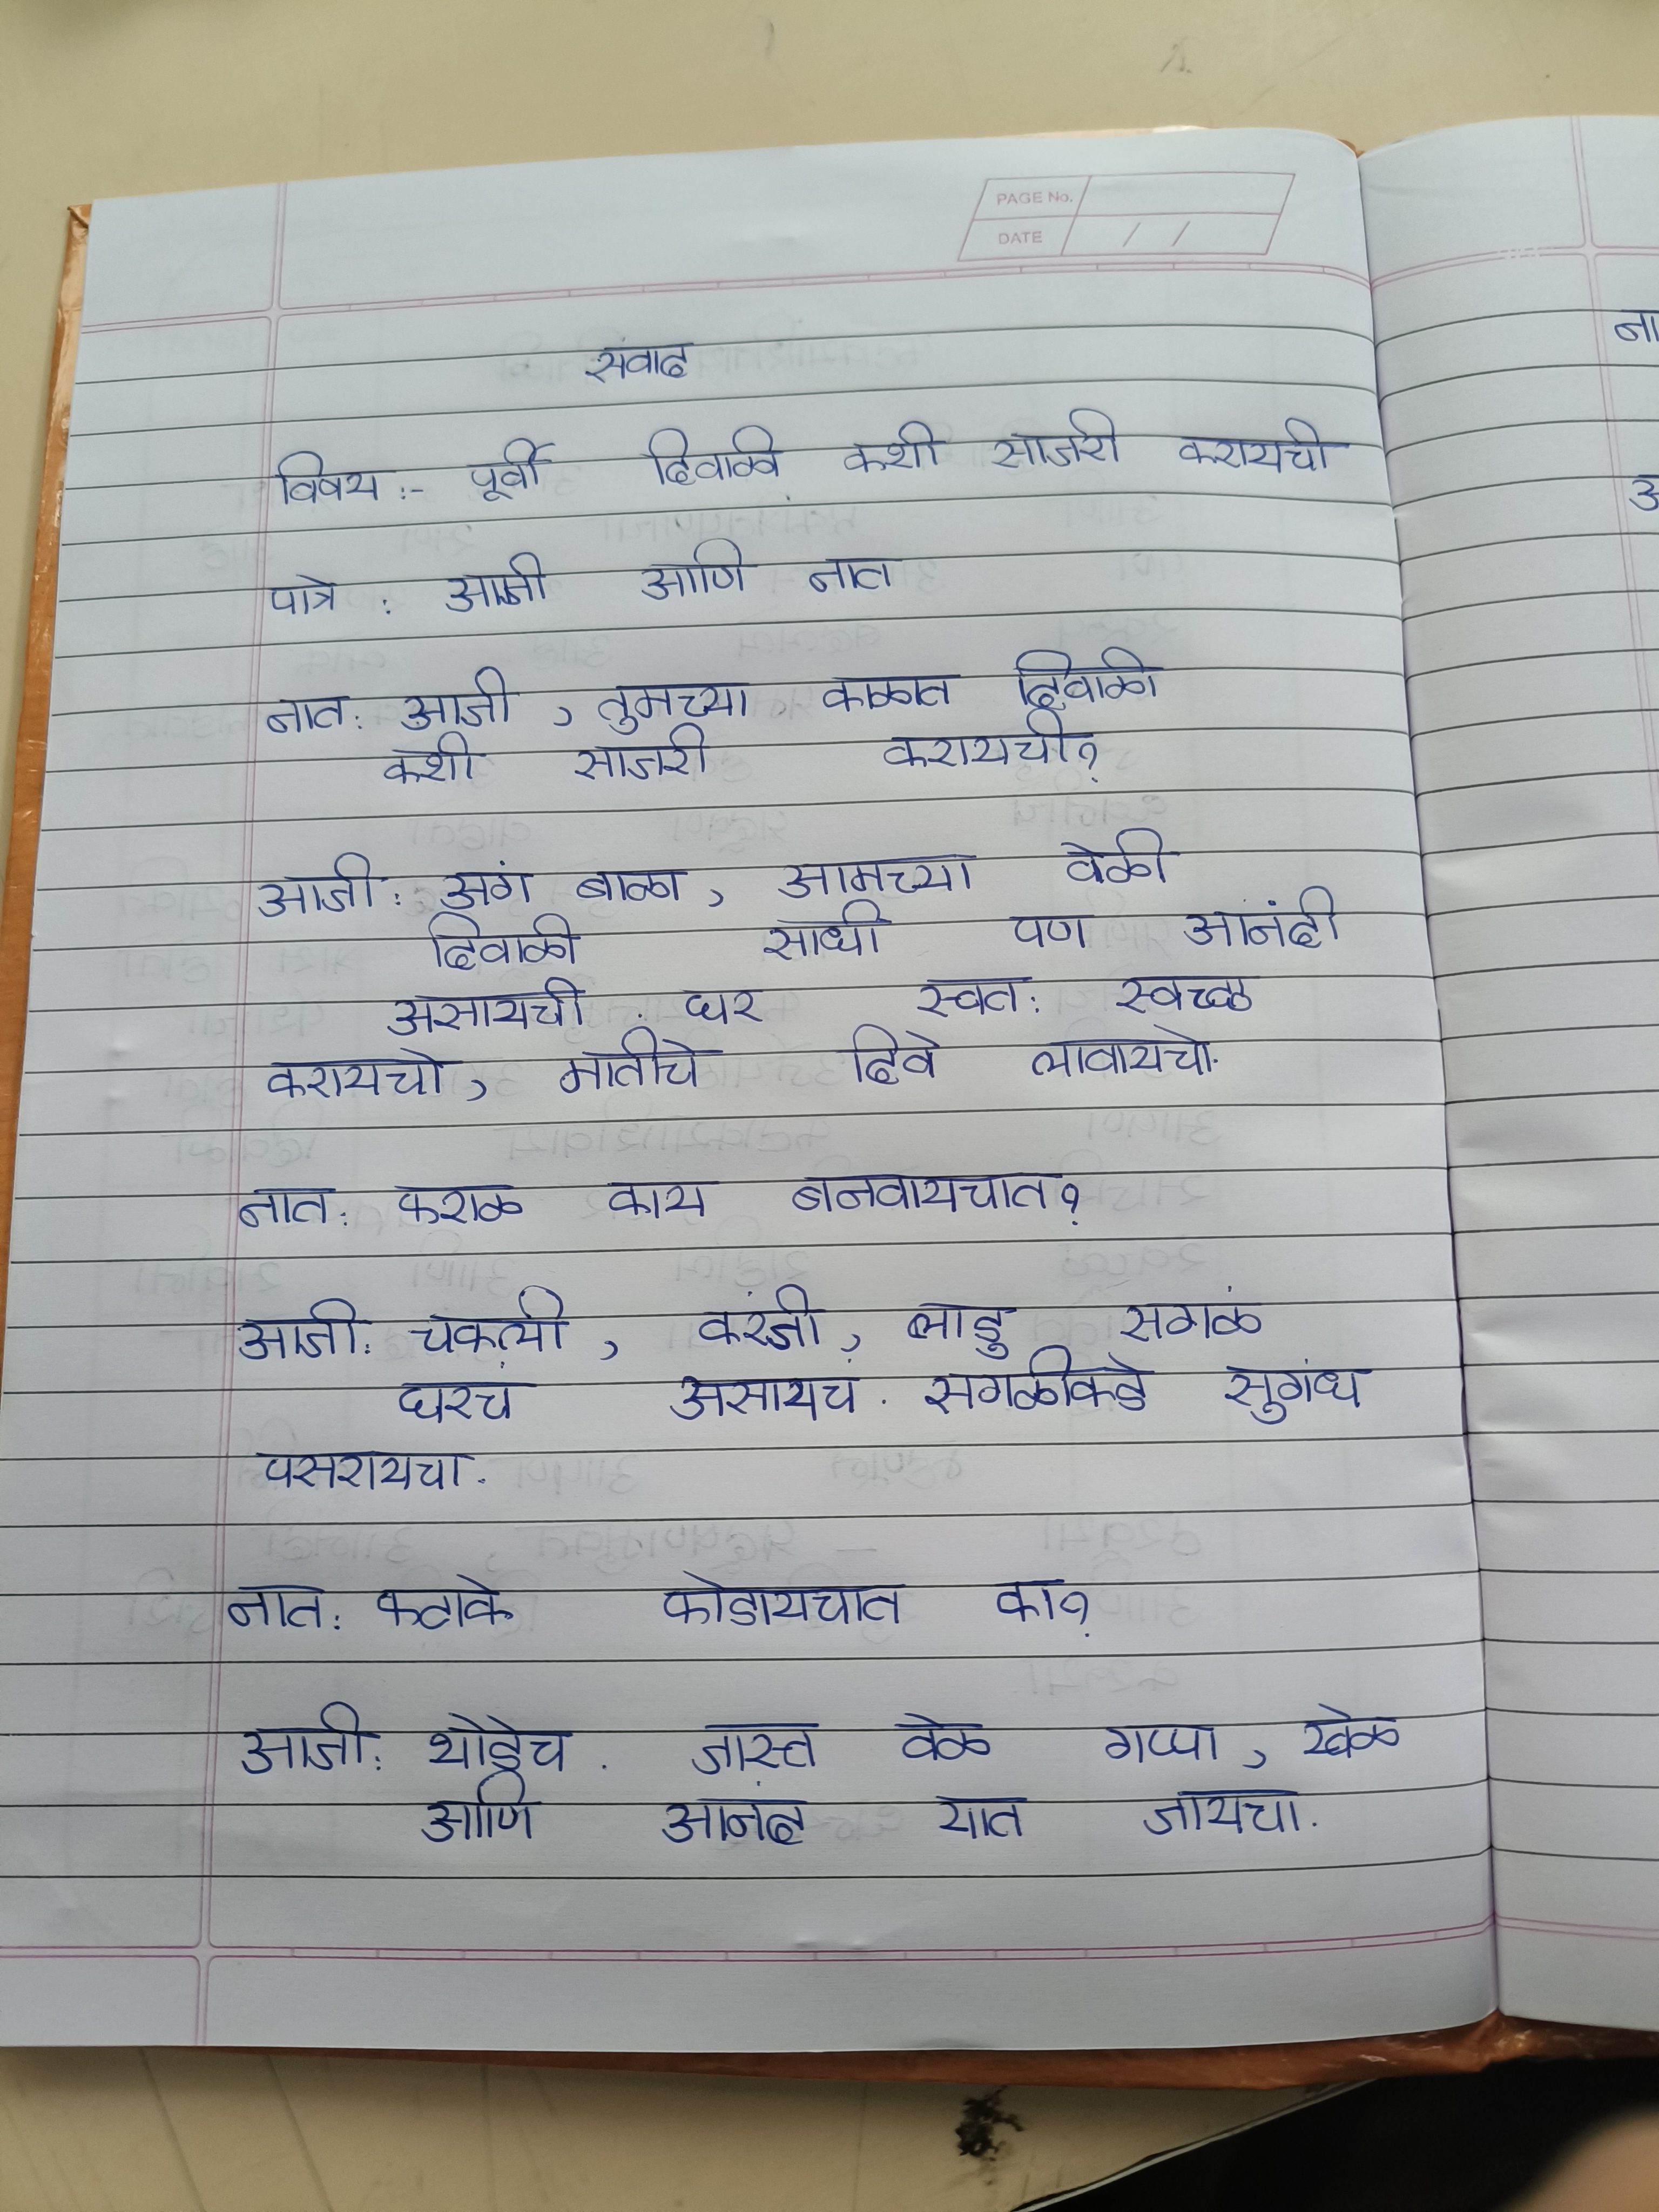 PAGE No.
DATE / /
संवाद
विषय :- पूर्वी दिवाळी कशी साजरी करायची
पात्रे : आजी आणि नात
नात: आजी , तुमच्या काळात दिवाळी
कशी साजरी करायची?
आजी: अगं बाळा , आमच्या वेळी
दिवाळी साधी पण आनंदी
असायची . घर स्वत: स्वच्छ
करायचो , मातीचे दिवे लावायचो.
नात: फराळ काय बनवायचात?
आजी: चकली , करंजी , लाडु सगळं
घरचं असायचं . सगळीकडे सुगंध
पसरायचा .
नात: फटाके फोडायचात का?
आजी: थोडेच . जास्त वेळ गप्पा , खेळ
आणि आनंद यात जायचा .
ना